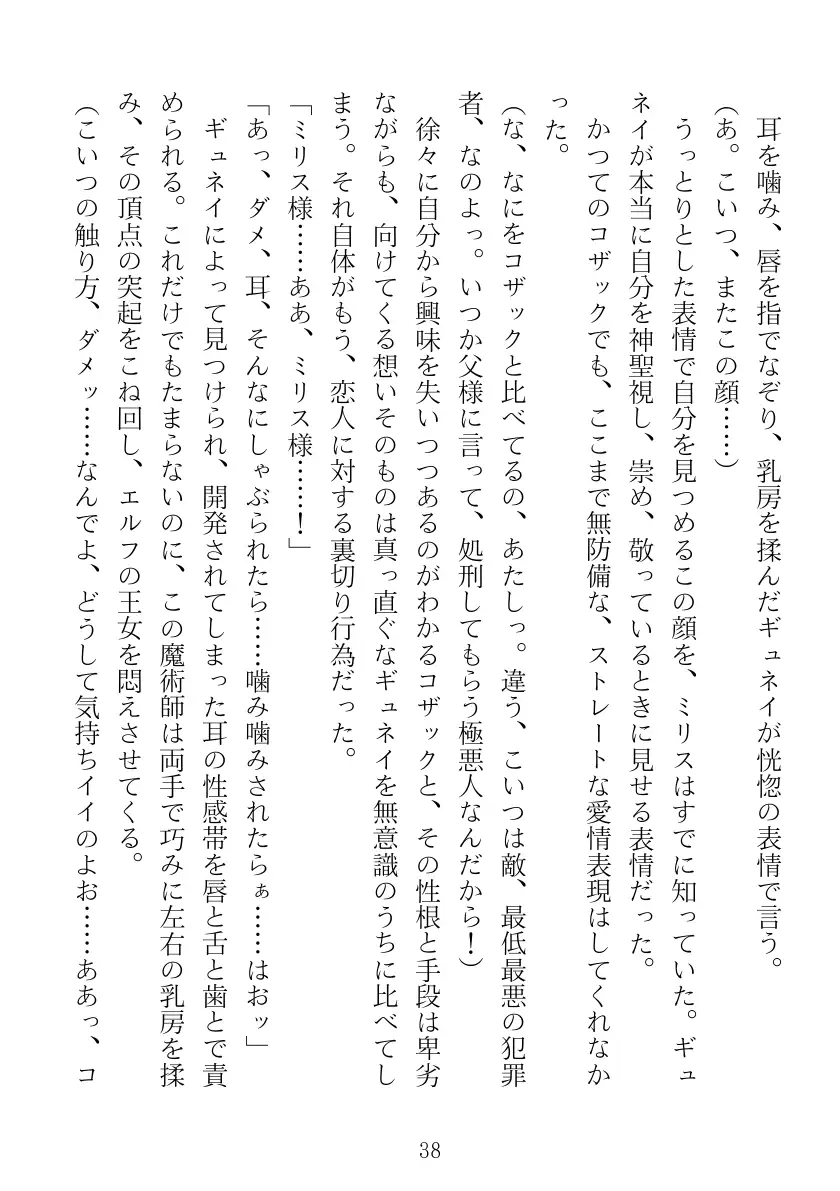 耳を噛み、唇を指でなぞり、乳房を揉んだギュネイが恍惚の表情で言う。
(あ。こいつ、またこの顔……)
うっとりとした表情で自分を見つめるこの顔を、ミリスはすでに知っていた。ギュ
ネイが本当に自分を神聖視し、崇め、敬っているときに見せる表情だった。
かつてのコザックでも、ここまで無防備な、ストレートな愛情表現はしてくれなか
った。
(な、なにをコザックと比べてるの、あたしっ。違う、こいつは敵、最低最悪の犯罪
者、なのよっ。いつか父様に言って、処刑してもらう極悪人なんだから！)
徐々に自分から興味を失いつつあるのがわかるコザックと、その性根と手段は卑劣
ながらも、向けてくる想いそのものは真っ直ぐなギュネイを無意識のうちに比べてし
まう。それ自体がもう、恋人に対する裏切り行為だった。
「ミリス様……ああ、ミリス様……！」
「あっ、ダメ、耳、そんなにしゃぶられたら……噛み噛みされたらぁ……はおッ」
ギュネイによって見つけられ、開発されてしまった耳の性感帯を唇と舌と歯とで責
められる。これだけでもたまらないのに、この魔術師は両手で巧みに左右の乳房を揉
み、その頂点の突起をこね回し、エルフの王女を悶えさせてくる。
(こいつの触り方、ダメッ……なんでよ、どうして気持ちイイのよお……ああっ、コ
38